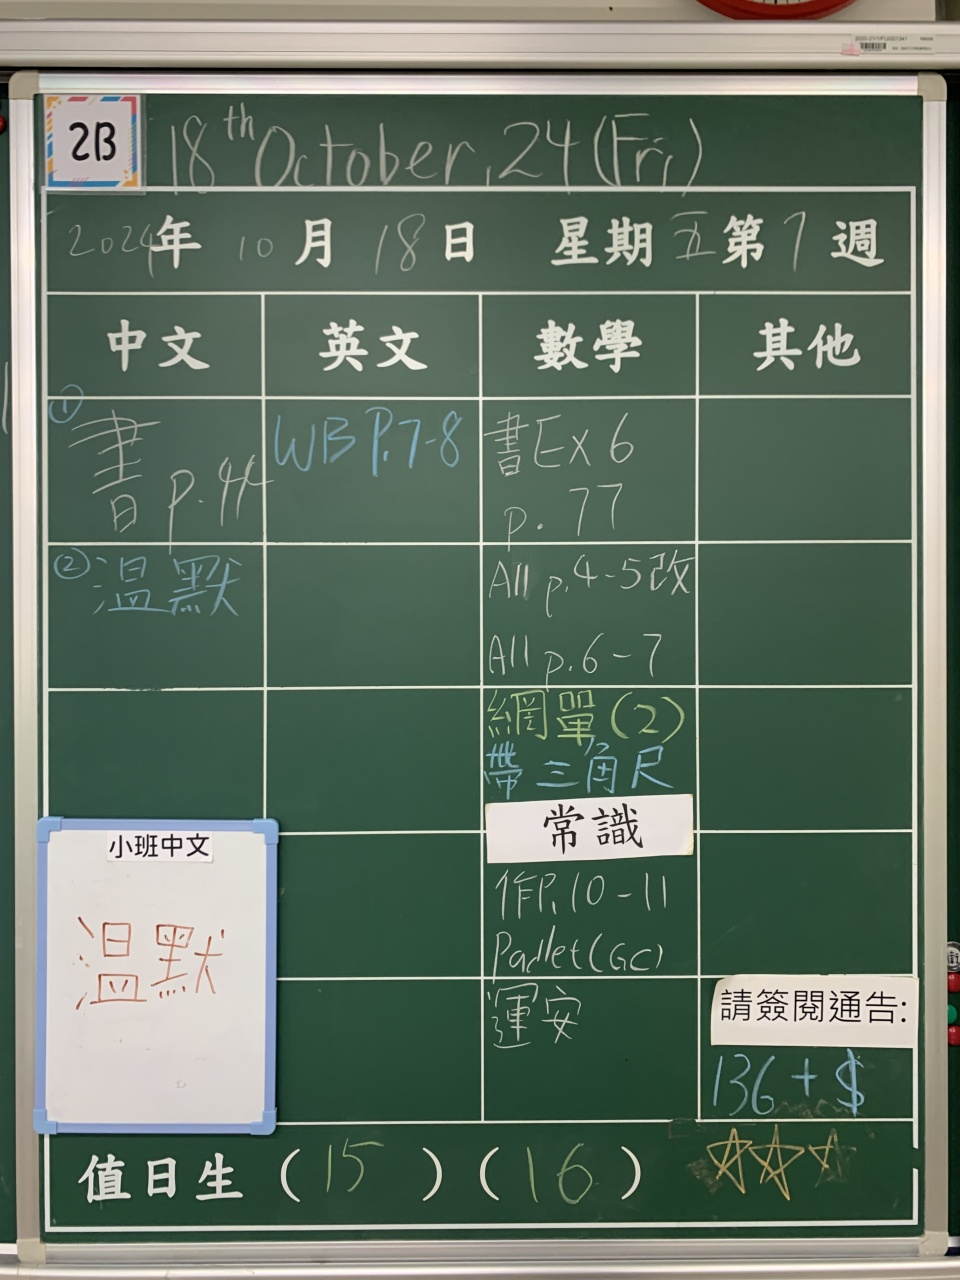 2B
18th October, 24 (Fri)
2024年 10月 18日 星期五 第7週
中文
英文
數學
其他
①
書 p.44
WB P.7-8
書 Ex 6
p. 77
② 温默
All p.4-5改
All p.6-7
網單(2)
帶三角尺
常識
作P.10-11
Padlet(GC)
運安
小班中文
温默
請簽閱通告:
136 + $
值日生 (15) (16)